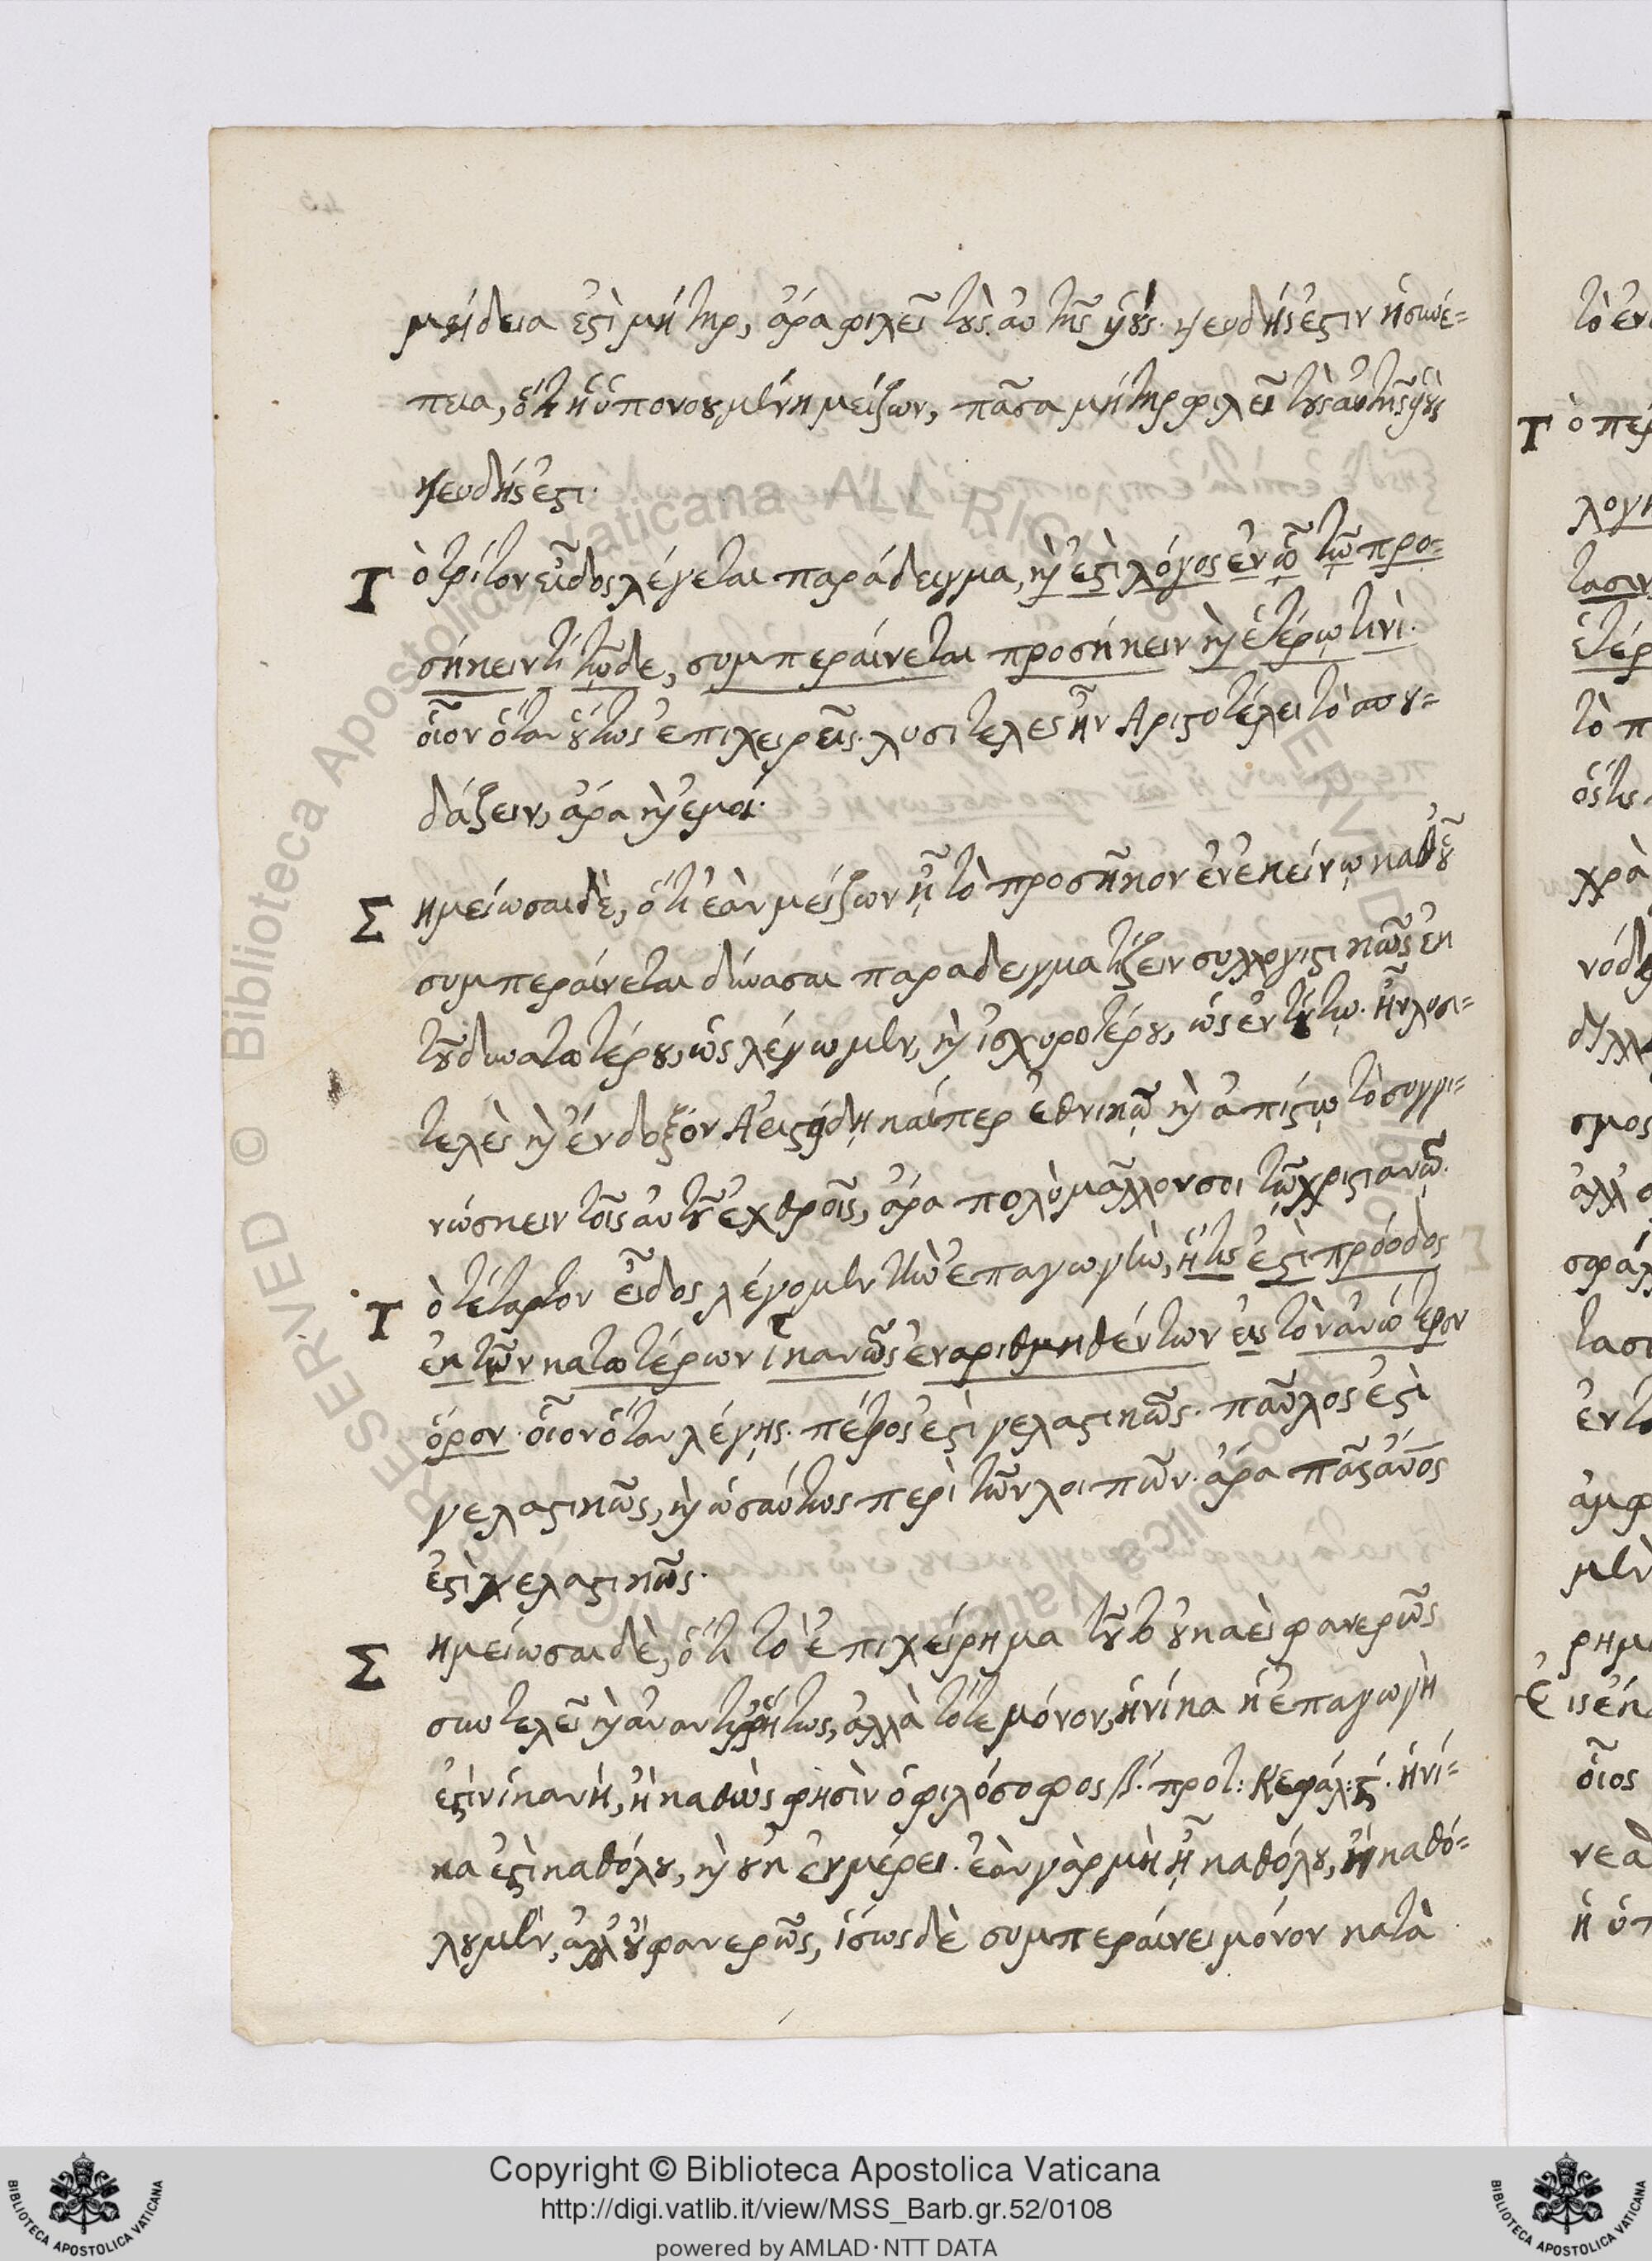 μήδεια ἐστὶ μήτηρ, ἄρα φιλεῖ τοὺς αὑτῆς υἱούς. ψευδής ἐστιν ἡ συνέ=
πεια, ὅτι ἡ ὑπονουμένη μείζων, πᾶσα μήτηρ φιλεῖ τοὺς αὑτῆς υἱοὺς
ψευδής ἐστι.
Τὸ τρίτον εἶδος λέγεται παράδειγμα, καὶ ἐστὶ λόγος ἐν ᾧ τῷ προ=
σήκειν τὶ τῷδε, συμπεραίνεται προσήκειν καὶ ἑτέρῳ τινὶ.
οἷον ὅταν οὕτως ἐπιχειρεῖς. λυσιτελὲς ἦν Ἀριστοτέλει τὸ σπου=
δάζειν, ἄρα καὶ ἐμοί.
Σημείωσαι δὲ, ὅτι ἐὰν μείζων ᾖ τὸ προσῆκον ἐν ἐκείνῳ καθ' οὗ
συμπεραίνεται δύνασαι παραδειγματίζειν συλλογιστικῶς ἐκ
τοῦ δυνατωτέρου, ὡς λέγωμεν, καὶ ἰσχυροτέρου, ὡς ἐν τούτῳ. ἦν λυσι=
τελὲς καὶ ἔνδοξον Ἀριστείδῃ καίπερ ἐθνικῷ καὶ ἀπίστῳ τὸ συγγι=
νώσκειν τοῖς αὑτοῦ ἐχθροῖς, ἄρα πολὺ μᾶλλον σοι τῷ χριστιανῷ.
Τὸ τέταρτον εἶδος λέγομεν τὴν ἐπαγωγὴν, ἥτις ἐστὶ πρόοδος
ἐκ τῶν κατωτέρων ἱκανῶς ἐναριθμηθέντων εἰς τὸν ἀνώτερον
ὅρον. οἷον ὅταν λέγῃς. πέτρος ἐστὶ γελαστικῶς. παῦλος ἐστὶ
γελαστικῶς, καὶ ὡσαύτως περὶ τῶν λοιπῶν. ἄρα πᾶς ἄνος
ἐστὶ γελαστικῶς.
Σημείωσαι δὲ, ὅτι τὸ ἐπιχείρημα τοῦτο οὐκ ἀεὶ φανερῶς
συντελεῖ καὶ ἀναντιρρήτως, ἀλλὰ τότε μόνον, ἡνίκα ἡ ἐπαγωγὴ
ἐστὶν ἱκανή, ἢ καθὼς φησὶν ὁ φιλόσοφος β΄. προτ: Κεφάλ: ς΄. ἡνί=
κα ἐστὶ καθόλου, καὶ οὐκ ἐν μέρει. ἐὰν γὰρ μὴ ᾖ καθόλου, ἢ καθό=
λου μὲν, ἀλλ' οὐ φανερῶς, ἴσως δὲ συμπεραίνει μόνον κατὰ
Copyright © Biblioteca Apostolica Vaticana
http://digi.vatlib.it/view/MSS_Barb.gr.52/0108
powered by AMLAD·NTT DATA